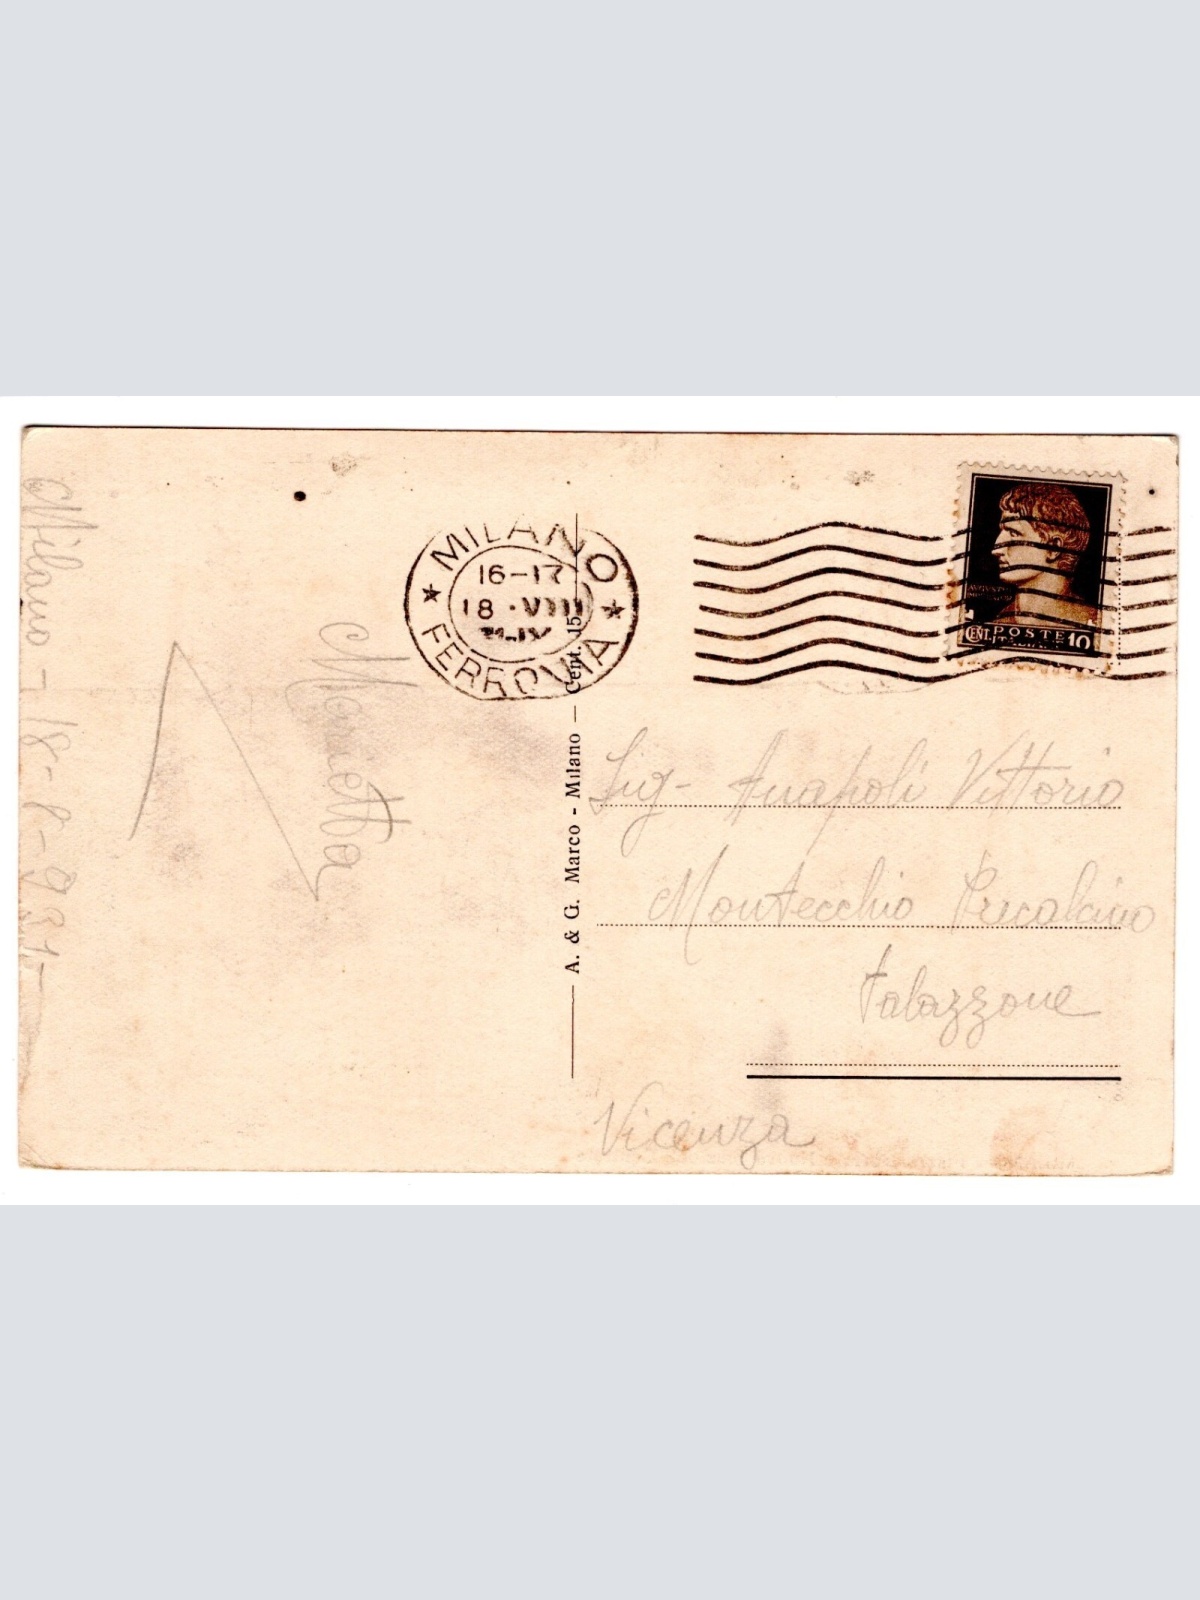 Milano - 18-8-931-
Mariotta
MILANO
16-17
18 · VIII
FERROVIA
A. & G. Marco - Milano - Cent. 15
POSTE
CENT. ITALIANE 10
Sig- Anapoli Vittorio
Montecchio Precalcino
Palazzone
Vicenza